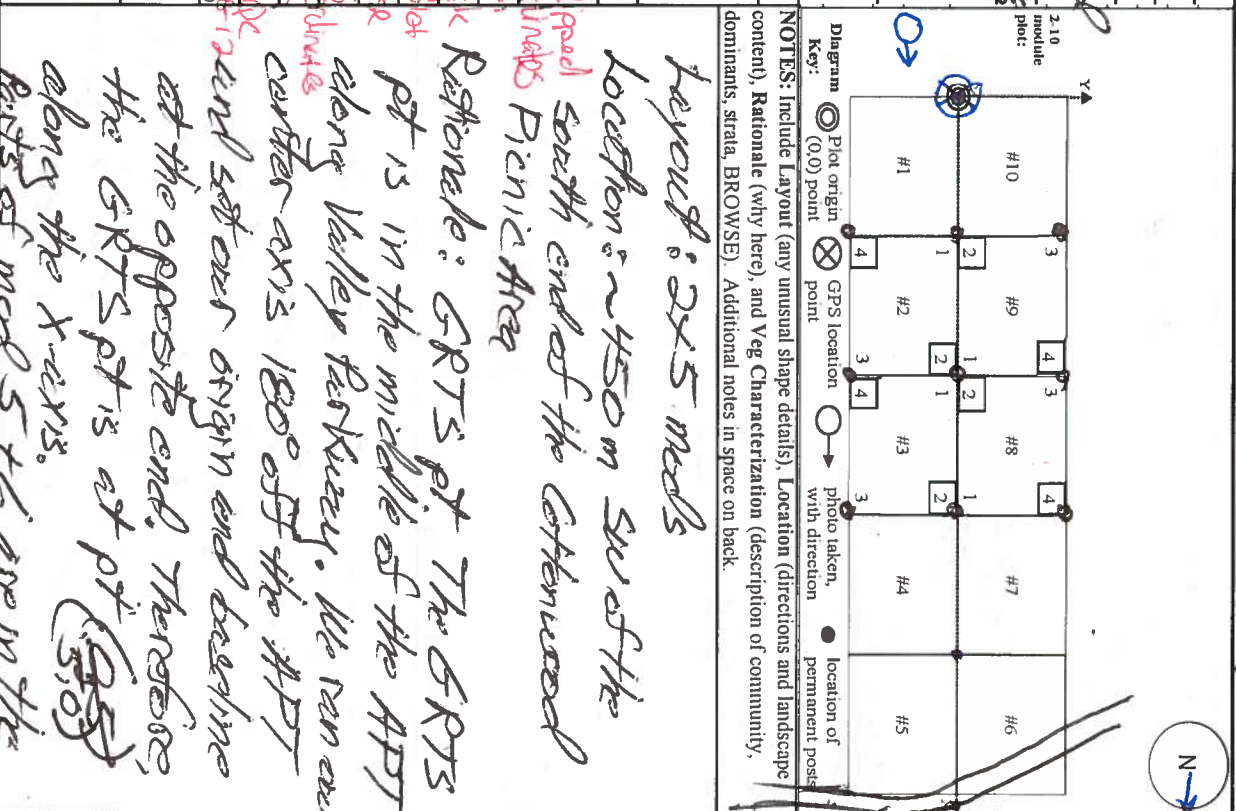 2-10
module
plot:
Y
N
#10
#9
#8
#7
#6
3
4
3
4
2
1
2
1
1
2
1
2
1
#1
#2
#3
#4
#5
4
3
4
3
Diagram
Key:
Plot origin
(0,0) point
GPS location
point
photo taken,
with direction
location of
permanent posts
NOTES: Include Layout (any unusual shape details), Location (directions and landscape
content), Rationale (why here), and Veg Characterization (description of community,
dominants, strata, BROWSE). Additional notes in space on back.
Layout: 2x5 mods
Location: ~450m SW of the
South end of the
Picnic Area
Rationale: GRTS pt The GRTS
pt is in the middle of the APT
along Valley Parkway. We ran our
center axis 180° off the APT
and set our origin and baseline
at the opposite end. Therefore,
the GRTS pt is at pt
along the X-axis.
Parts of mod 5 + 6 are in the